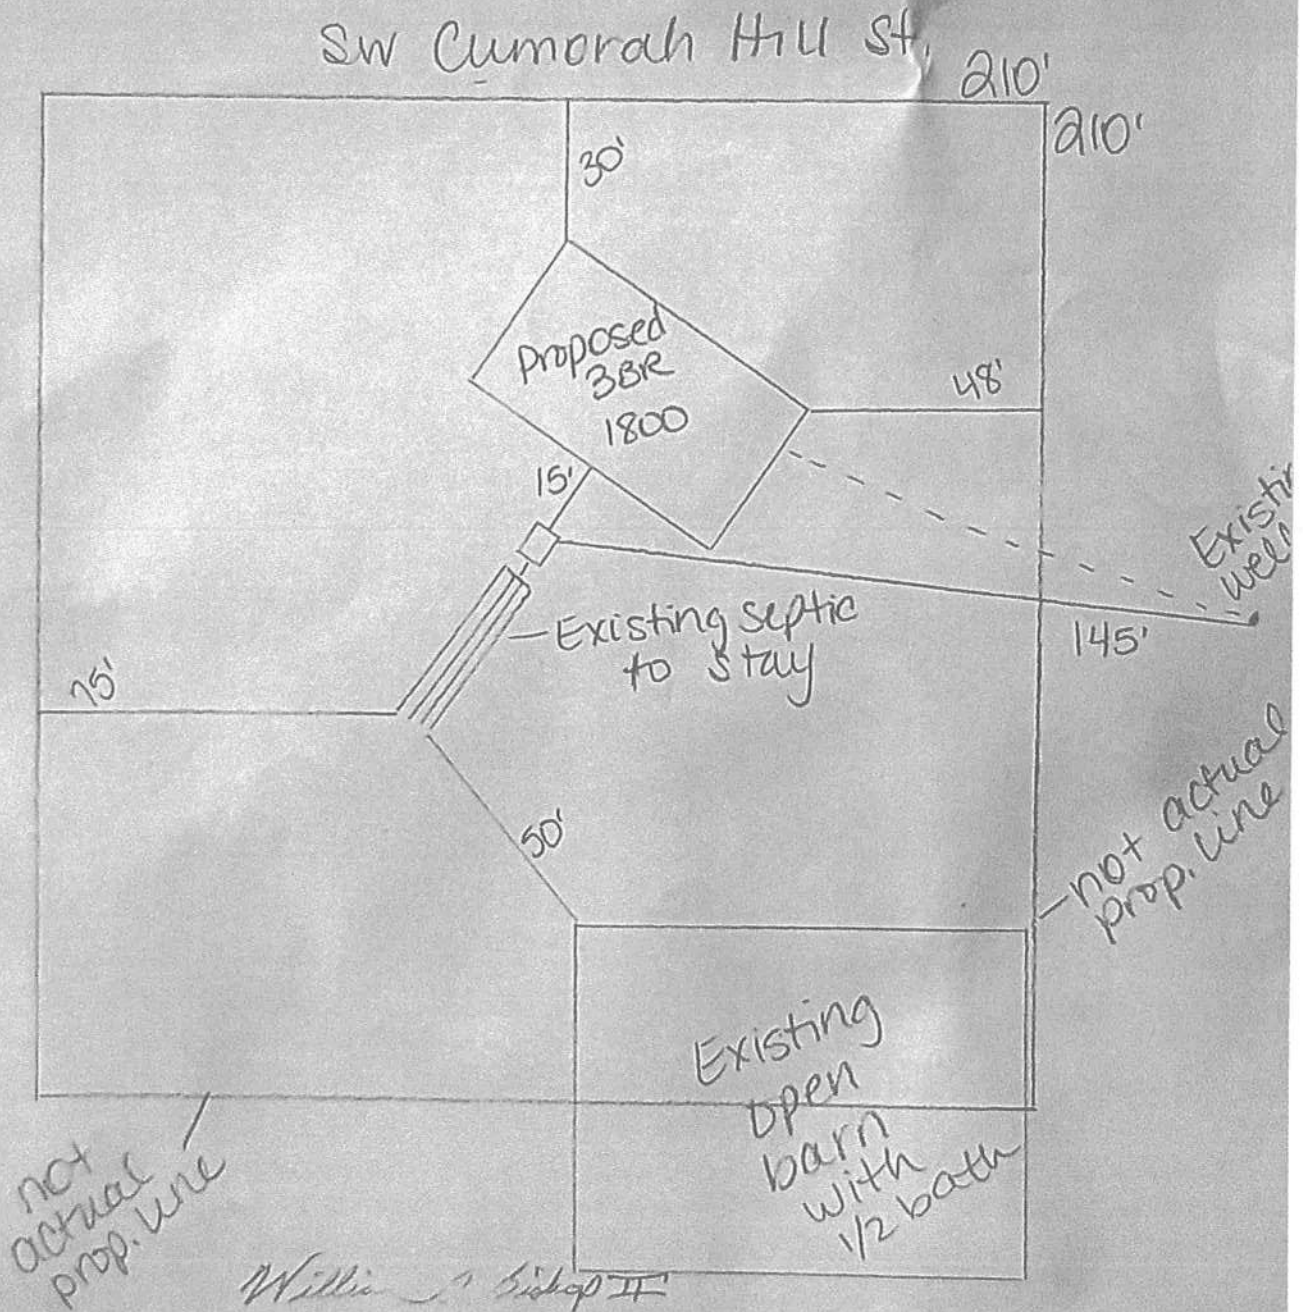 SW Cumorah Hill St.
210'
210'
30'
Proposed
3BR
1800
48'
15'
Existin
well
Existing septic
to stay
145'
75'
not actual
prop. line
50'
Existing
open
barn
with
1/2 bath
not
actual
prop. line
Bishop III